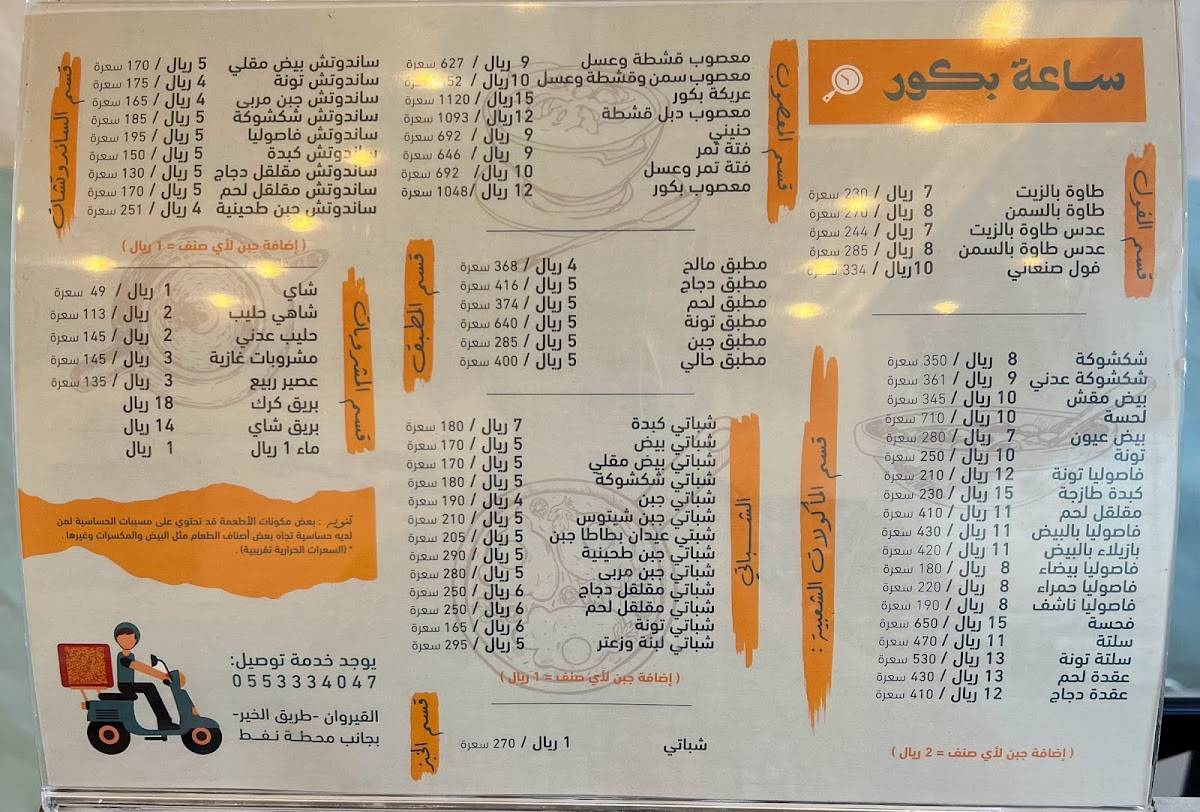 ساعة بكور
قسم الفول
طاوة بالزيت 7 ريال / 230 سعرة
طاوة بالسمن 8 ريال / 270 سعرة
عدس طاوة بالزيت 7 ريال / 244 سعرة
عدس طاوة بالسمن 8 ريال / 285 سعرة
فول صنعاني 10 ريال / 334 سعرة
قسم المأكولات الشعبية :
شكشوكة 8 ريال / 350 سعرة
شكشوكة عدني 9 ريال / 361 سعرة
بيض مقش 10 ريال / 345 سعرة
لحسة 10 ريال / 710 سعرة
بيض عيون 7 ريال / 280 سعرة
تونة 10 ريال / 250 سعرة
فاصوليا تونة 12 ريال / 210 سعرة
كبدة طازجة 15 ريال / 230 سعرة
مقلقل لحم 11 ريال / 410 سعرة
فاصوليا بالبيض 11 ريال / 430 سعرة
بازيلاء بالبيض 11 ريال / 420 سعرة
فاصوليا بيضاء 8 ريال / 180 سعرة
فاصوليا حمراء 8 ريال / 220 سعرة
فاصوليا ناشف 8 ريال / 190 سعرة
فحسة 15 ريال / 650 سعرة
سلتة 11 ريال / 470 سعرة
سلتة تونة 13 ريال / 530 سعرة
عقدة لحم 13 ريال / 430 سعرة
عقدة دجاج 12 ريال / 410 سعرة
( إضافة جبن لأي صنف = 2 ريال )
قسم المعصوب
معصوب قشطة وعسل 9 ريال / 627 سعرة
معصوب سمن وقشطة وعسل 10 ريال / سعرة
عريكة بكور 15 ريال / 1120 سعرة
معصوب دبل قشطة 12 ريال / 1093 سعرة
حنيني 9 ريال / 692 سعرة
فتة تمر 9 ريال / 646 سعرة
فتة تمر وعسل 10 ريال / 692 سعرة
معصوب بكور 12 ريال / 1048 سعرة
قسم المطبق
مطبق مالح 4 ريال / 368 سعرة
مطبق دجاج 5 ريال / 416 سعرة
مطبق لحم 5 ريال / 374 سعرة
مطبق تونة 5 ريال / 640 سعرة
مطبق جبن 5 ريال / 285 سعرة
مطبق حالي 5 ريال / 400 سعرة
الشباتي
شباتي كبدة 7 ريال / 180 سعرة
شباتي بيض 5 ريال / 170 سعرة
شباتي بيض مقلي 5 ريال / 170 سعرة
شباتي شكشوكة 5 ريال / 180 سعرة
شباتي جبن 4 ريال / 190 سعرة
شباتي جبن شيتوس 5 ريال / 210 سعرة
شبتي عيدان بطاطا جبن 5 ريال / 205 سعرة
شباتي جبن طحينية 5 ريال / 290 سعرة
شباتي جبن مربى 5 ريال / 280 سعرة
شباتي مقلقل دجاج 6 ريال / 250 سعرة
شباتي مقلقل لحم 6 ريال / 250 سعرة
شباتي تونة 6 ريال / 165 سعرة
شباتي لبنة وزعتر 5 ريال / 295 سعرة
( إضافة جبن لأي صنف = 1 ريال )
قسم الخبز
شباتي 1 ريال / 270 سعرة
قسم الساندوتشات
ساندوتش بيض مقلي 5 ريال / 170 سعرة
ساندوتش تونة 4 ريال / 175 سعرة
ساندوتش جبن مربى 4 ريال / 165 سعرة
ساندوتش شكشوكة 5 ريال / 185 سعرة
ساندوتش فاصوليا 5 ريال / 195 سعرة
ساندوتش كبدة 5 ريال / 150 سعرة
ساندوتش مقلقل دجاج 5 ريال / 130 سعرة
ساندوتش مقلقل لحم 5 ريال / 170 سعرة
ساندوتش جبن طحينية 4 ريال / 251 سعرة
( إضافة جبن لأي صنف = 1 ريال )
قسم المشروبات
شاي 1 ريال / 49 سعرة
شاهي حليب 2 ريال / 113 سعرة
حليب عدني 2 ريال / 145 سعرة
مشروبات غازية 3 ريال / 145 سعرة
عصير ربيع 3 ريال / 135 سعرة
بريق كرك 18 ريال
بريق شاي 14 ريال
ماء 1 ريال 1 ريال
تنويه : بعض مكونات الأطعمة قد تحتوي على مسببات الحساسية لمن
لديه حساسية تجاه بعض أصناف الطعام مثل البيض والمكسرات وغيرها .
* (السعرات الحرارية تقريبية) .
يوجد خدمة توصيل:
0553334047
القيروان -طريق الخير-
بجانب محطة نفط